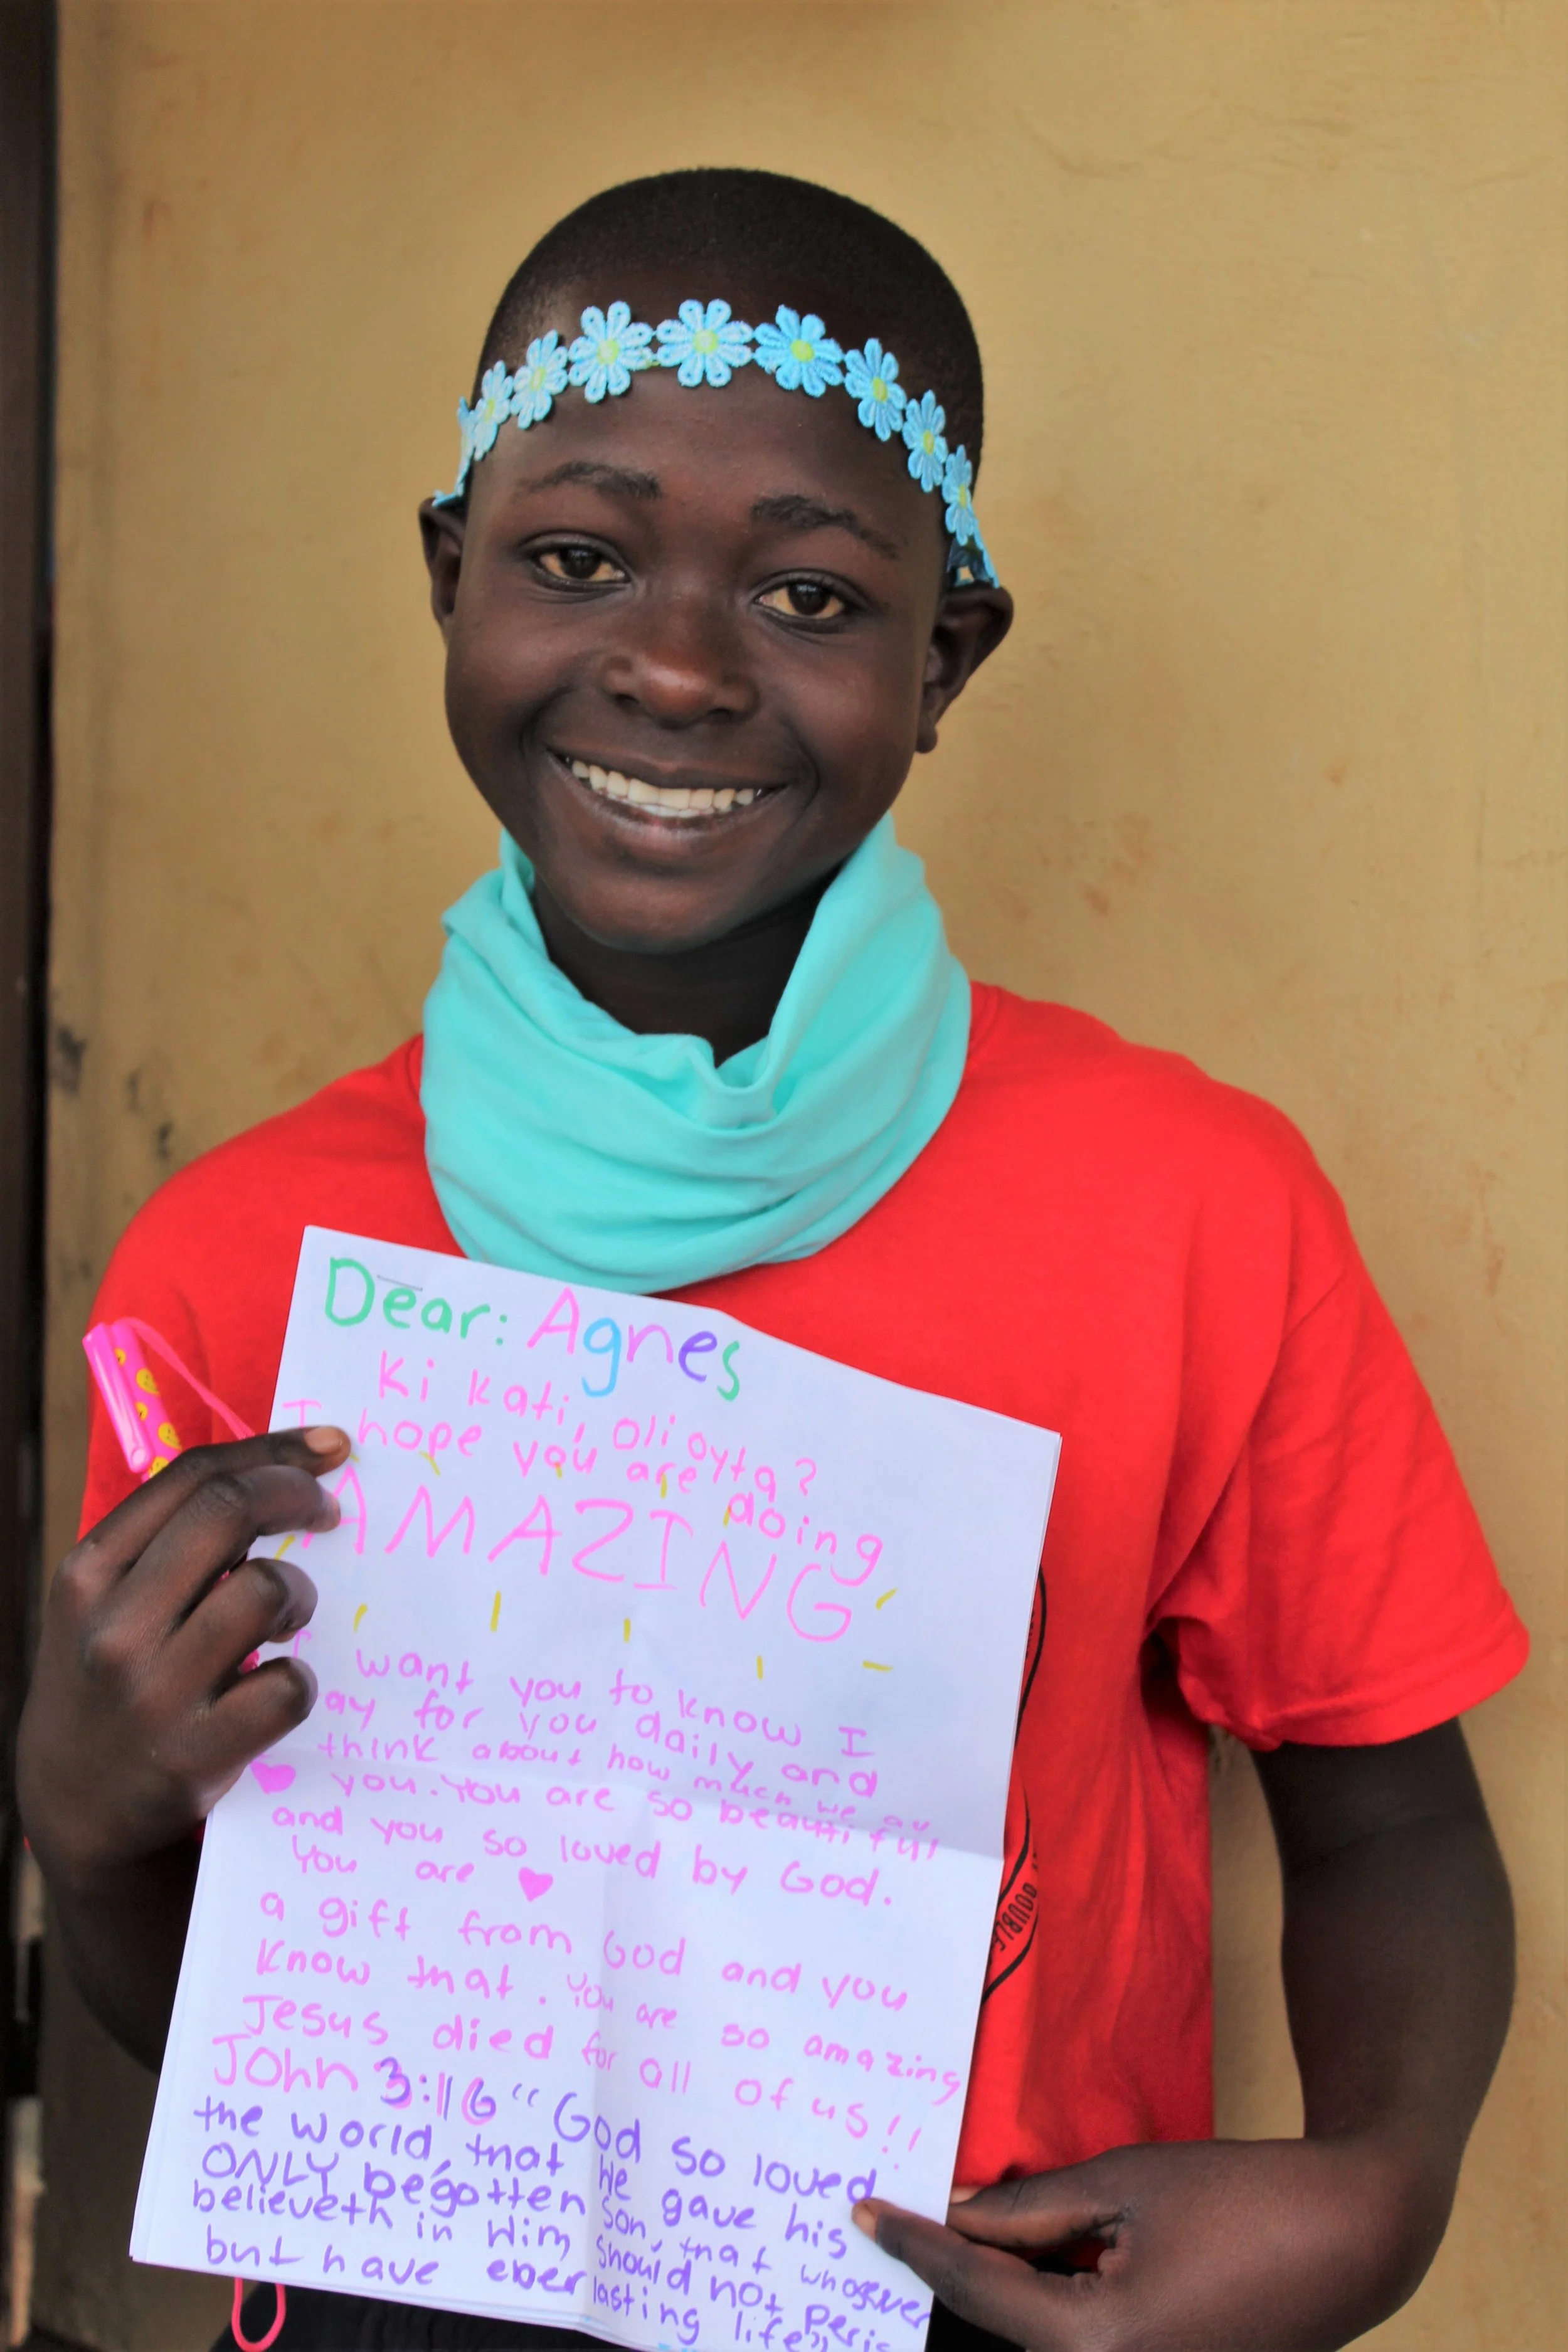 Dear: Agnes
Ki kati, oli oyta?
I hope you are doing
AMAZING
I want you to know I
ay for you daily and
think about how much we
you. You are so beautiful
and you so loved by God.
You are
a gift from God and you
know that. You are so amazing
Jesus died for all of us!!
John 3:16 "God so loved
the world, that He gave his
ONLY begotten Son, that whosoever
believeth in Him should not peris
but have everlasting life"
DOUBLE